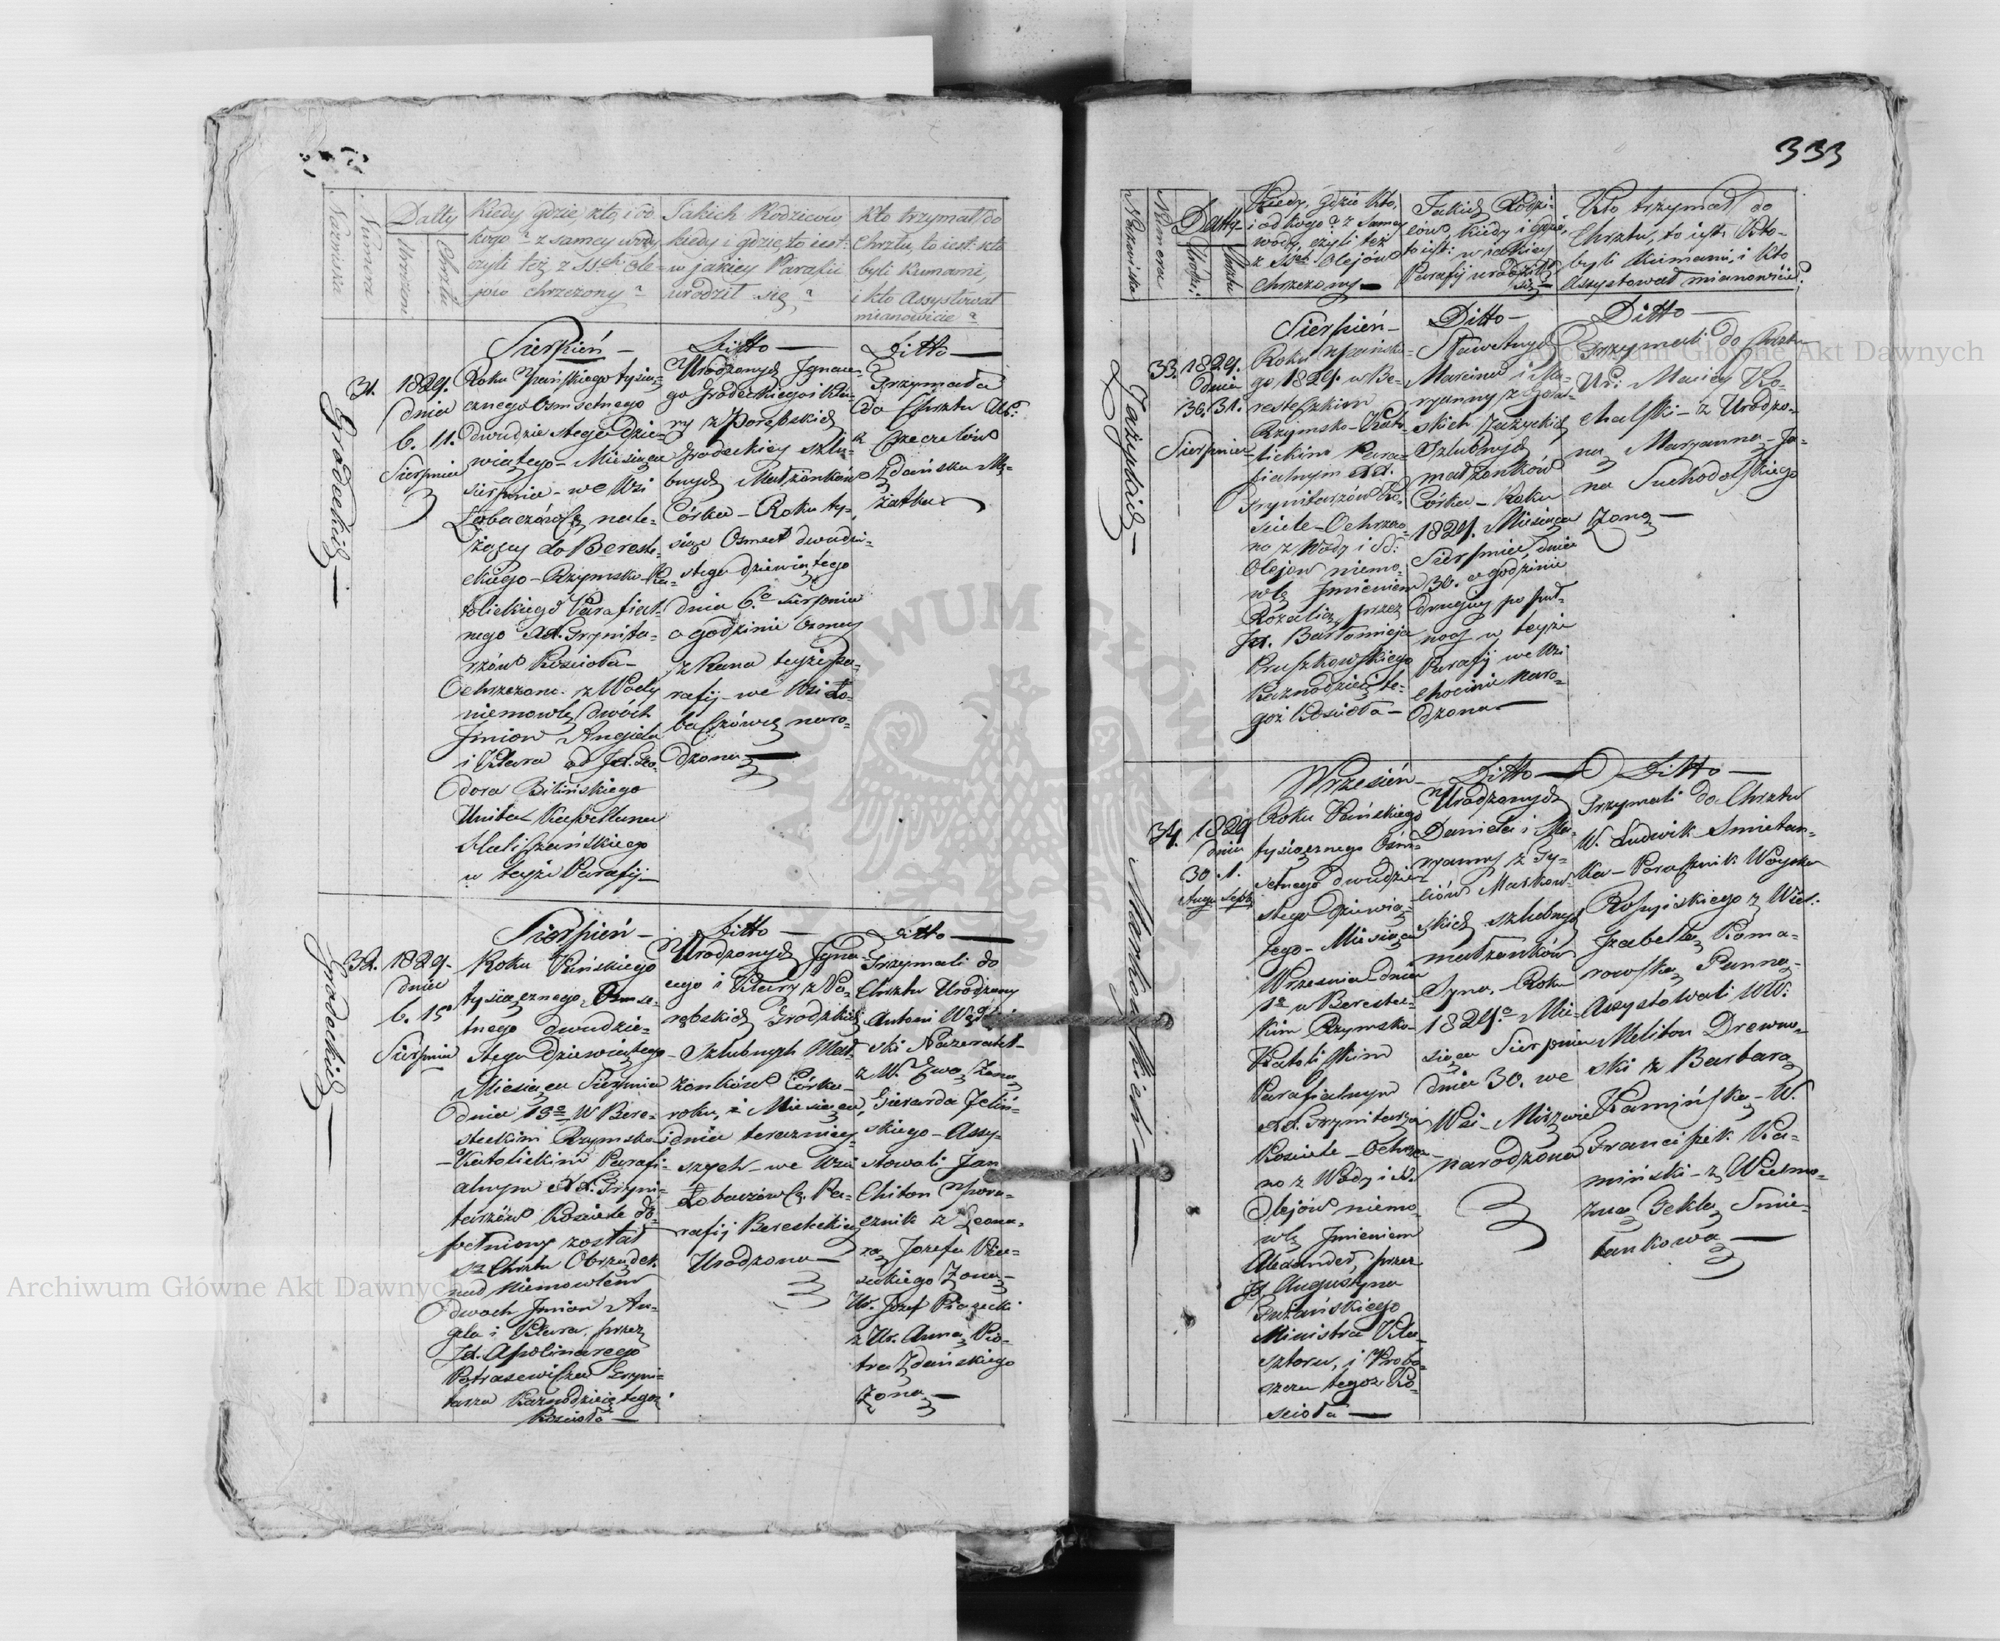 333
Nazwiska
Numera
Datty
Urodzenia
Chrztu
Kiedy, gdzie, kto, i od
kogo? z samey wody
czyli też z SSch Ole-
jow chrzczony?
Jakich Rodziców
kiedy i gdzie, to iest:
w jakiey Parafii
urodził się?
Kto trzymał do
Chrztu, to iest: kto
byli Kumami,
i kto Assystował
mianowicie?
Grodeckich
31.
1829.
dnia
6. 11.
Sierpnia
Sierpień
Roku Pańskiego tysią-
cznego Osmsetnego
dwudziestego dzie-
wiątego Miesiąca
Sierpnia we Wsi
Łobaczówce nale-
żącey do Bereste-
ckiego Rzymsko Ka-
tolickiego Parafial-
nego XX. Trynita-
rzów Kościoła
Ochrzczone z Wody
niemowlę dwóch
Imion Angiela
i Klara od JX. Teo-
dora Bilińskiego
Unita Kapellana
w teyże Parafij
Ditto
Urodzonych Ignace-
go Grodeckiego i Kla-
ry z Porębskich
Grodeckiey szlu-
bnych Małżonków
Córka Roku ty-
siąc Osmset dwudzi-
stego dziewiątego
dnia 6. Sierpnia
o godzinie Osmey
z Rana teyże Pa-
rafij we Wsi Ło-
baczówce naro-
dzona
Ditto
Trzymała
do Chrztu Ur.
z Czeczelów
Zdańska Mę-
żatka
Grodeckich
32.
1829.
dnia
6. 15
Sierpnia
Sierpień
Roku Pańskiego
tysiącznego Osmse-
tnego dwudzie-
stego dziewiątego
Miesiąca Sierpnia
dnia 15 w Bere-
steckim Rzymsko
Katolickim Parafi-
alnym XX. Tryni-
tarzów Kościele do-
pełniony został
Sz Chrztu Obrządek
nad Niemowlem
dwoch Imion An-
gela i Klara, przez
JX. Apolinarego
Petrasewicza Tryni-
tarza Kaznodzieię tegoż
Kościoła
Ditto
Urodzonych Igna-
cego i Klary z Po-
rębskich Grodzkich
Szlubnych Mał-
żonków Córka
roku, i Miesiąca,
i dnia teraźniey-
szych we Wsi
Łobaczówce Pa-
rafij Beresteckiey
Urodzona
Ditto
Trzymali do
Chrztu Urodzony
Antoni
z W. Ewą Żoną
Gierarda Jeliń-
skiego Assy-
stowali Jan
Chiton Poru-
cznik z Leonu-
Jozefa
Żoną
Ur. Jozef Piasecki
z Ur. Anną Pio-
tra Zdańskiego
Żoną
Nazwiska
Numera
Datty
Urodz:
Chrztu
Kiedy, gdzie, kto,
i od kogo? z samey
wody, czyli też
z SSch Olejów
chrzczony
Jakich Rodzi-
ców, kiedy i gdzie,
to iest: w iakiey
Parafij urodził
się
Kto trzymał do
Chrztu, to iest: Kto
byli Kumami, i kto
Assystował mianowicie?
Zażyckich
33.
1829.
dnia
30. 31.
Sierpnia
Sierpień
Roku Pańskie-
go 1829. w Be-
resteczkim
Rzymsko-Kato-
lickim Para-
fialnym XX.
Trynitarzów Ko-
ściele Ochrzczo-
no z Wody i SS:
Olejow niemo-
wlę Imieniem
Rozalią, przez
JX. Bartłomieja
Pruszkowskiego
Kaznodzieię te-
goż Kościoła
Ditto
Sławetnych
Marcina i Ma-
ryanny
Zażyckich
Szlubnych
małżonków
Córka Roku
1829. Miesiąca
Sierpnia, dnia
30. o godzinie
drugiey po poł-
nocy w teyże
Parafij we Wsi
naro-
dzona
Ditto
Trzymali do Chrztu
Ur: Maciey Ko-
chalski z Urodzo-
ną Maryanną Ja-
na Suchodolskiego
Żoną
Markowskich
34.
1829
dnia
30. 1.
Aug. Septb.
Wrzesień
Roku Pańskiego
tysiącznego Ośm-
setnego dwudzie-
stego Dziewią-
tego Miesiąca
Września dnia
1 w Berestec-
kim Rzymsko
Katolickim
Parafialnym
XX. Trynitarzy
Kościele Ochrzczo-
no z Wody i S.
Olejów niemo-
wlę Imieniem
Alexander, przez
JX. Augustyna
Ministra Kla-
sztoru, i Probo-
szcza tegoż Ko-
ścioła
Ditto
Urodzonych
Daniela i Ma-
ryanny z Ty-
ców Markow-
skich szlubnych
małżonków
Syna, Roku
1829. Mie-
siąca Sierpnia
dnia 30. we
Wsi
narodzona
Ditto
Trzymali do Chrztu
W. Ludwik Smietan-
ka Porucznik Woyska
Rossyiskiego z Wiel.
Izabellą Koma-
rowską Panną
Assystowali WW:
Meliton Drewno-
ski z Barbarą
Kamińską W.
Franciszek Ka-
miński z Wielmo-
żną Teklą Smie-
tankową
Archiwum Główne Akt Dawnych
Archiwum Główne Akt Dawnych